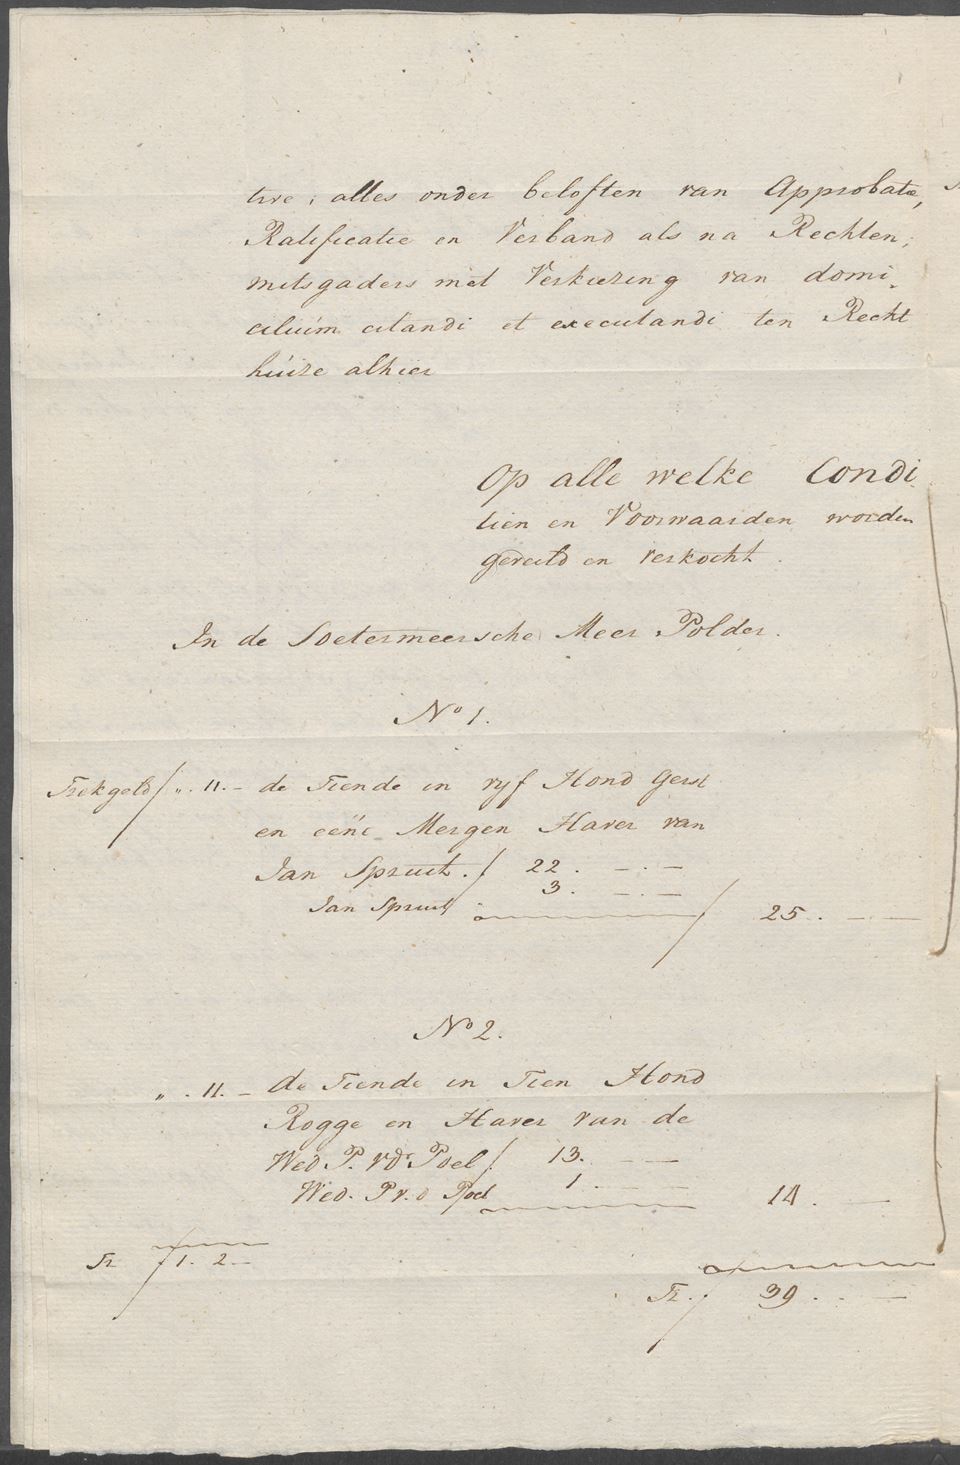 tive, alles onder beloften van Approbatie,
Ratificatie en Verband als na Rechten;
mitsgaders met Verkiezing van domi„
cilium citandi et executandi ten Recht
huize alhier
Op alle welke Condi
tien en Voorwaarden worden
geveild en verkocht.
In de Soetermeersche Meer Polder.
No 1.
Trekgeld ƒ „. 11. – de Tiende in vyf Hond Gerst
en eene Mergen Haver van
Jan Spruit. ƒ 22. – . –
Jan Spruit 3. – . –
ƒ 25. – –
No 2.
„ . 11. – de Tiende in Tien Hond
Rogge en Haver van de
Wed. P. vdr Poel ƒ 13. – –
Wed. P v. d Poel 1. – –
14. –
Tr ƒ 1. 2 –
Tr. ƒ 39. . –